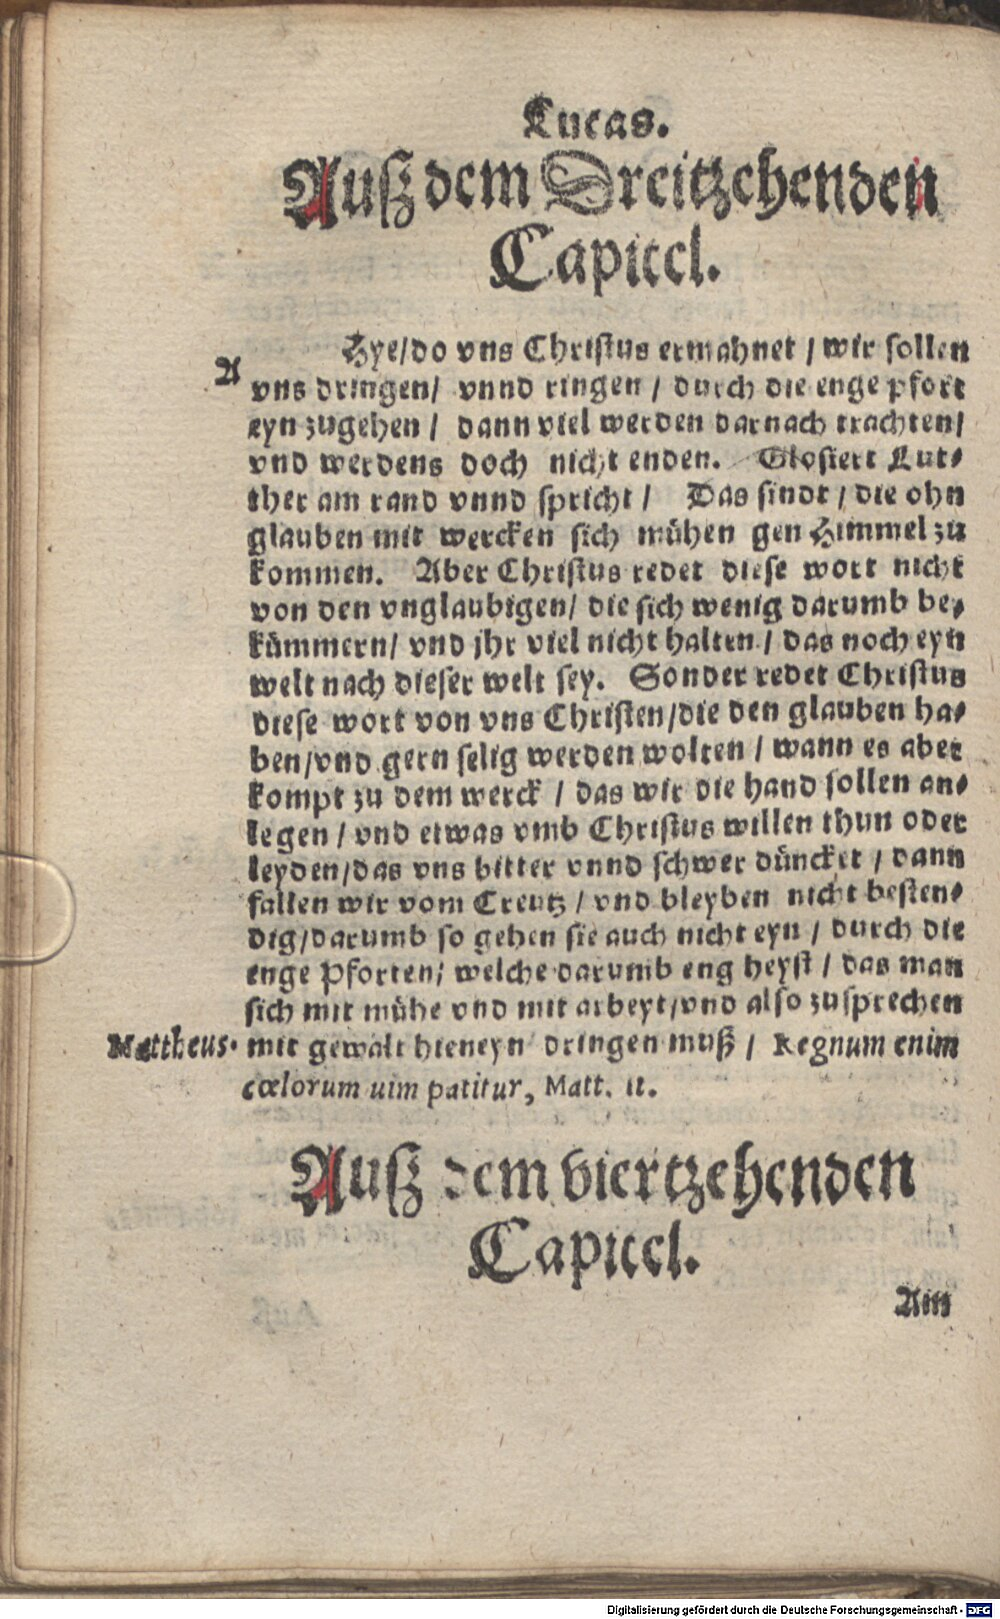 Lucas.
Auß dem Dreitzehenden
Capittel.
A
Hye/do vns Christus ermahnet / wir sollen
vns dringen/ vnnd ringen / durch die enge pfort
eyn zugehen / dann viel werden darnach trachten/
vnd werdens doch nicht enden. Glosiert Lut⸗
ther am rand vnnd spricht / Das sindt / die ohn
glauben mit wercken sich mühen gen Himmel zu
kommen. Aber Christus redet diese wort nicht
von den vnglaubigen/ die sich wenig darumb be⸗
kümmern/ vnd jhr viel nicht halten / das noch eyn
welt nach dieser welt sey. Sonder redet Christus
diese wort von vns Christen/die den glauben ha⸗
ben/vnd gern selig werden wolten / wann es aber
kompt zu dem werck / das wir die hand sollen an⸗
legen / vnd etwas vmb Christus willen thun oder
leyden/das vns bitter vnnd schwer düncket / dann
fallen wir vom Creutz / vnd bleyben nicht besten⸗
dig/darumb so gehen sie auch nicht eyn / durch die
enge Pforten/ welche darumb eng heyst / das man
sich mit mühe vnd mit arbeyt/vnd also zusprechen
Mattheus. mit gewalt hieneyn dringen muß / Regnum enim
cœlorum uim patitur, Matt. 11.
Auß dem viertzehenden
Capittel.
Am
Digitalisierung gefördert durch die Deutsche Forschungsgemeinschaft - DFG